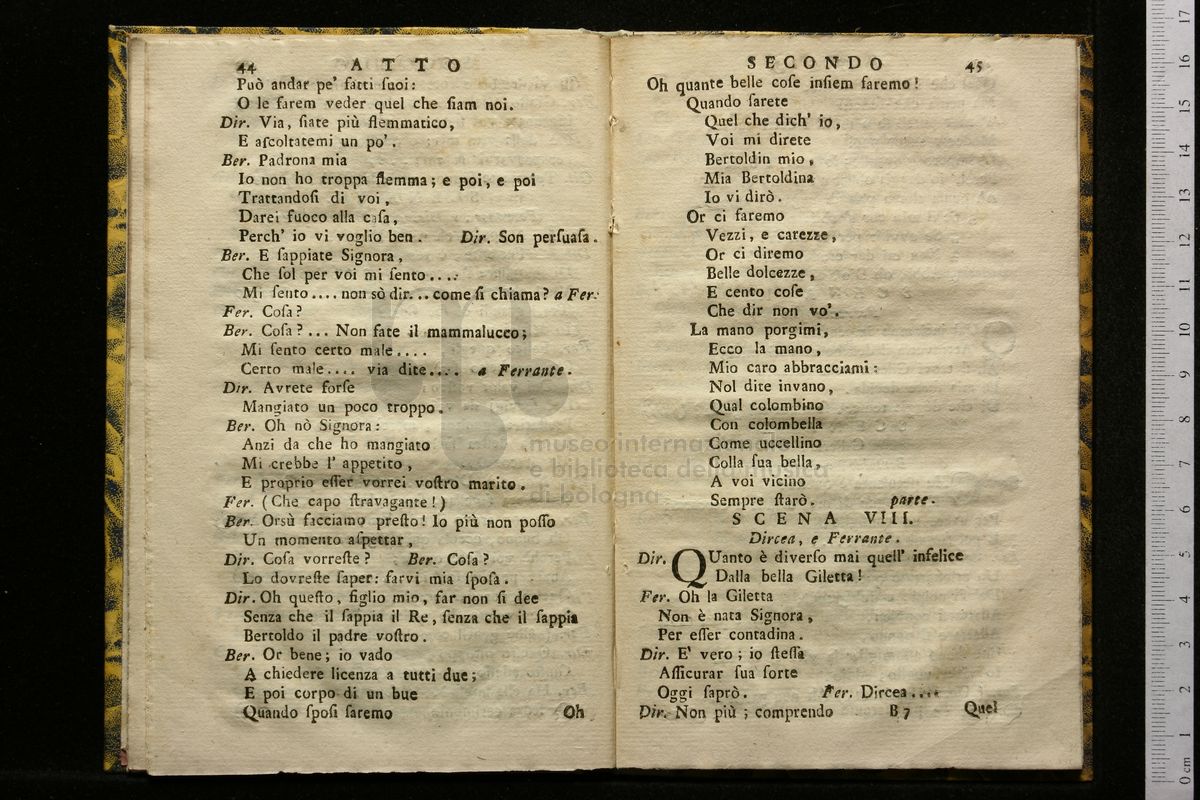 44 ATTO
Può andar pe' fatti ſuoi:
O le farem veder quel che ſiam noi.
Dir. Via, ſiate più flemmatico,
E aſcoltatemi un po'.
Ber. Padrona mia
Io non ho troppa flemma; e poi, e poi
Trattandoſi di voi,
Darei fuoco alla caſa,
Perch' io vi voglio ben. Dir. Son perſuaſa.
Ber. E ſappiate Signora,
Che ſol per voi mi ſento....
Mi ſento.... non sò dir... come ſi chiama? a Fer.
Fer. Coſa?
Ber. Coſa?... Non fate il mammalucco;
Mi ſento certo male....
Certo male.... via dite.... a Ferrante.
Dir. Avrete forſe
Mangiato un poco troppo.
Ber. Oh nò Signora:
Anzi da che ho mangiato
Mi crebbe l' appetito,
E proprio eſſer vorrei voſtro marito.
Fer. (Che capo ſtravagante!)
Ber. Orsù facciamo preſto! Io più non poſſo
Un momento aſpettar,
Dir. Coſa vorreſte? Ber. Coſa?
Lo dovreſte ſaper: farvi mia ſpoſa.
Dir. Oh queſto, figlio mio, far non ſi dee
Senza che il ſappia il Re, ſenza che il ſappia
Bertoldo il padre voſtro.
Ber. Or bene; io vado
A chiedere licenza a tutti due;
E poi corpo di un bue
Quando ſpoſi ſaremo
Oh
SECONDO 45
Oh quante belle coſe inſiem faremo!
Quando ſarete
Quel che dich' io,
Voi mi direte
Bertoldin mio,
Mia Bertoldina
Io vi dirò.
Or ci faremo
Vezzi, e carezze,
Or ci diremo
Belle dolcezze,
E cento coſe
Che dir non vo'.
La mano porgimi,
Ecco la mano,
Mio caro abbracciami:
Nol dite invano,
Qual colombino
Con colombella
Come uccellino
Colla ſua bella,
A voi vicino
Sempre ſtarò. parte.
SCENA VIII.
Dircea, e Ferrante.
Dir. QUanto è diverſo mai quell' infelice
Dalla bella Giletta!
Fer. Oh la Giletta
Non è nata Signora,
Per eſſer contadina.
Dir. E' vero; io ſteſſa
Aſſicurar ſua ſorte
Oggi ſaprò. Fer. Dircea....
Dir. Non più; comprendo
B 7 Quel
museo internazionale
e biblioteca della musica
di bologna
0 cm 1 2 3 4 5 6 7 8 9 10 11 12 13 14 15 16 17